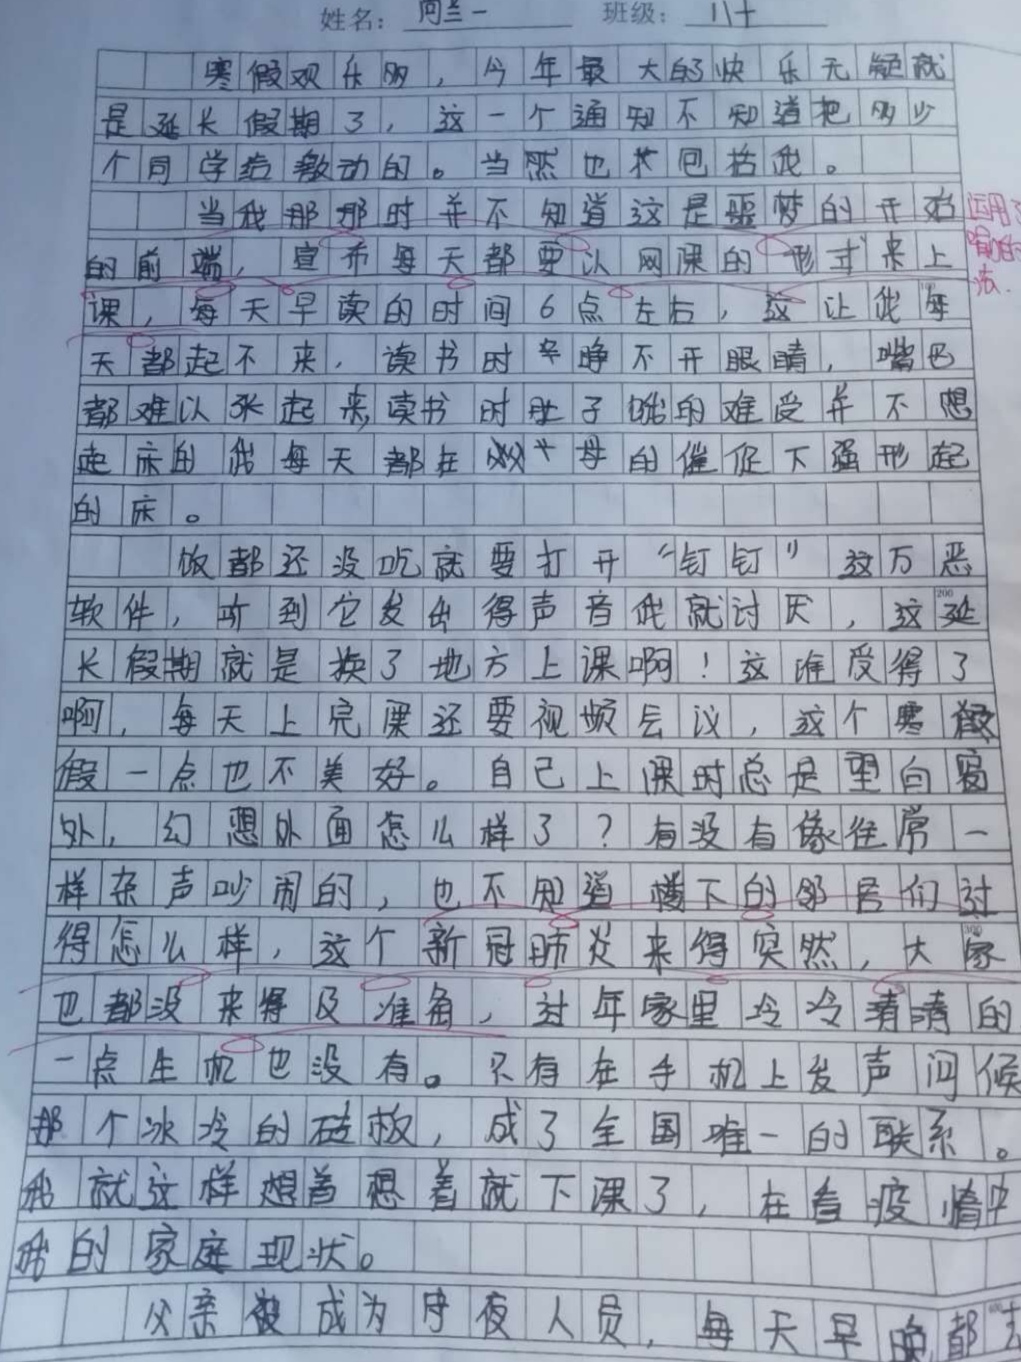 姓名： 闵兰一 班级： 八十
寒假欢乐多，今年最大的快乐无疑就
是延长假期了，这一个通知不知道把多少
个同学给激动的。当然也不包括我。
当我那那时并不知道这是噩梦的开始
的前端，宣布每天都要以网课的形式来上
课，每天早读的时间6点左右，这让我每
天都起不来，读书时辛睁不开眼睛，嘴巴
都难以张起来，读书时肚子饿的难受并不想
起床的我每天都在父母的催促下强形起
的床。
饭都还没吃就要打开“钉钉”这万恶
软件，听到它发出得声音我就讨厌，这延
长假期就是换了地方上课啊！这谁受得了
啊，每天上完课还要视频会议，这个寒
假一点也不美好。自己上课时总是望向窗
外，幻想外面怎么样了？有没有像往常一
样杂声吵闹的，也不知道楼下的邻居们过
得怎么样，这个新冠肺炎来得突然，大家
也都没来得及准备，过年家里冷冷清清的
一点生机也没有。只有在手机上发声问候
那个冰冷的砖板，成了全国唯一的联系。
我就这样想着想着就下课了，在看疫情中
我的家庭现状。
父亲被成为守夜人员，每天早晚都去
运用了
法．
100
200
300